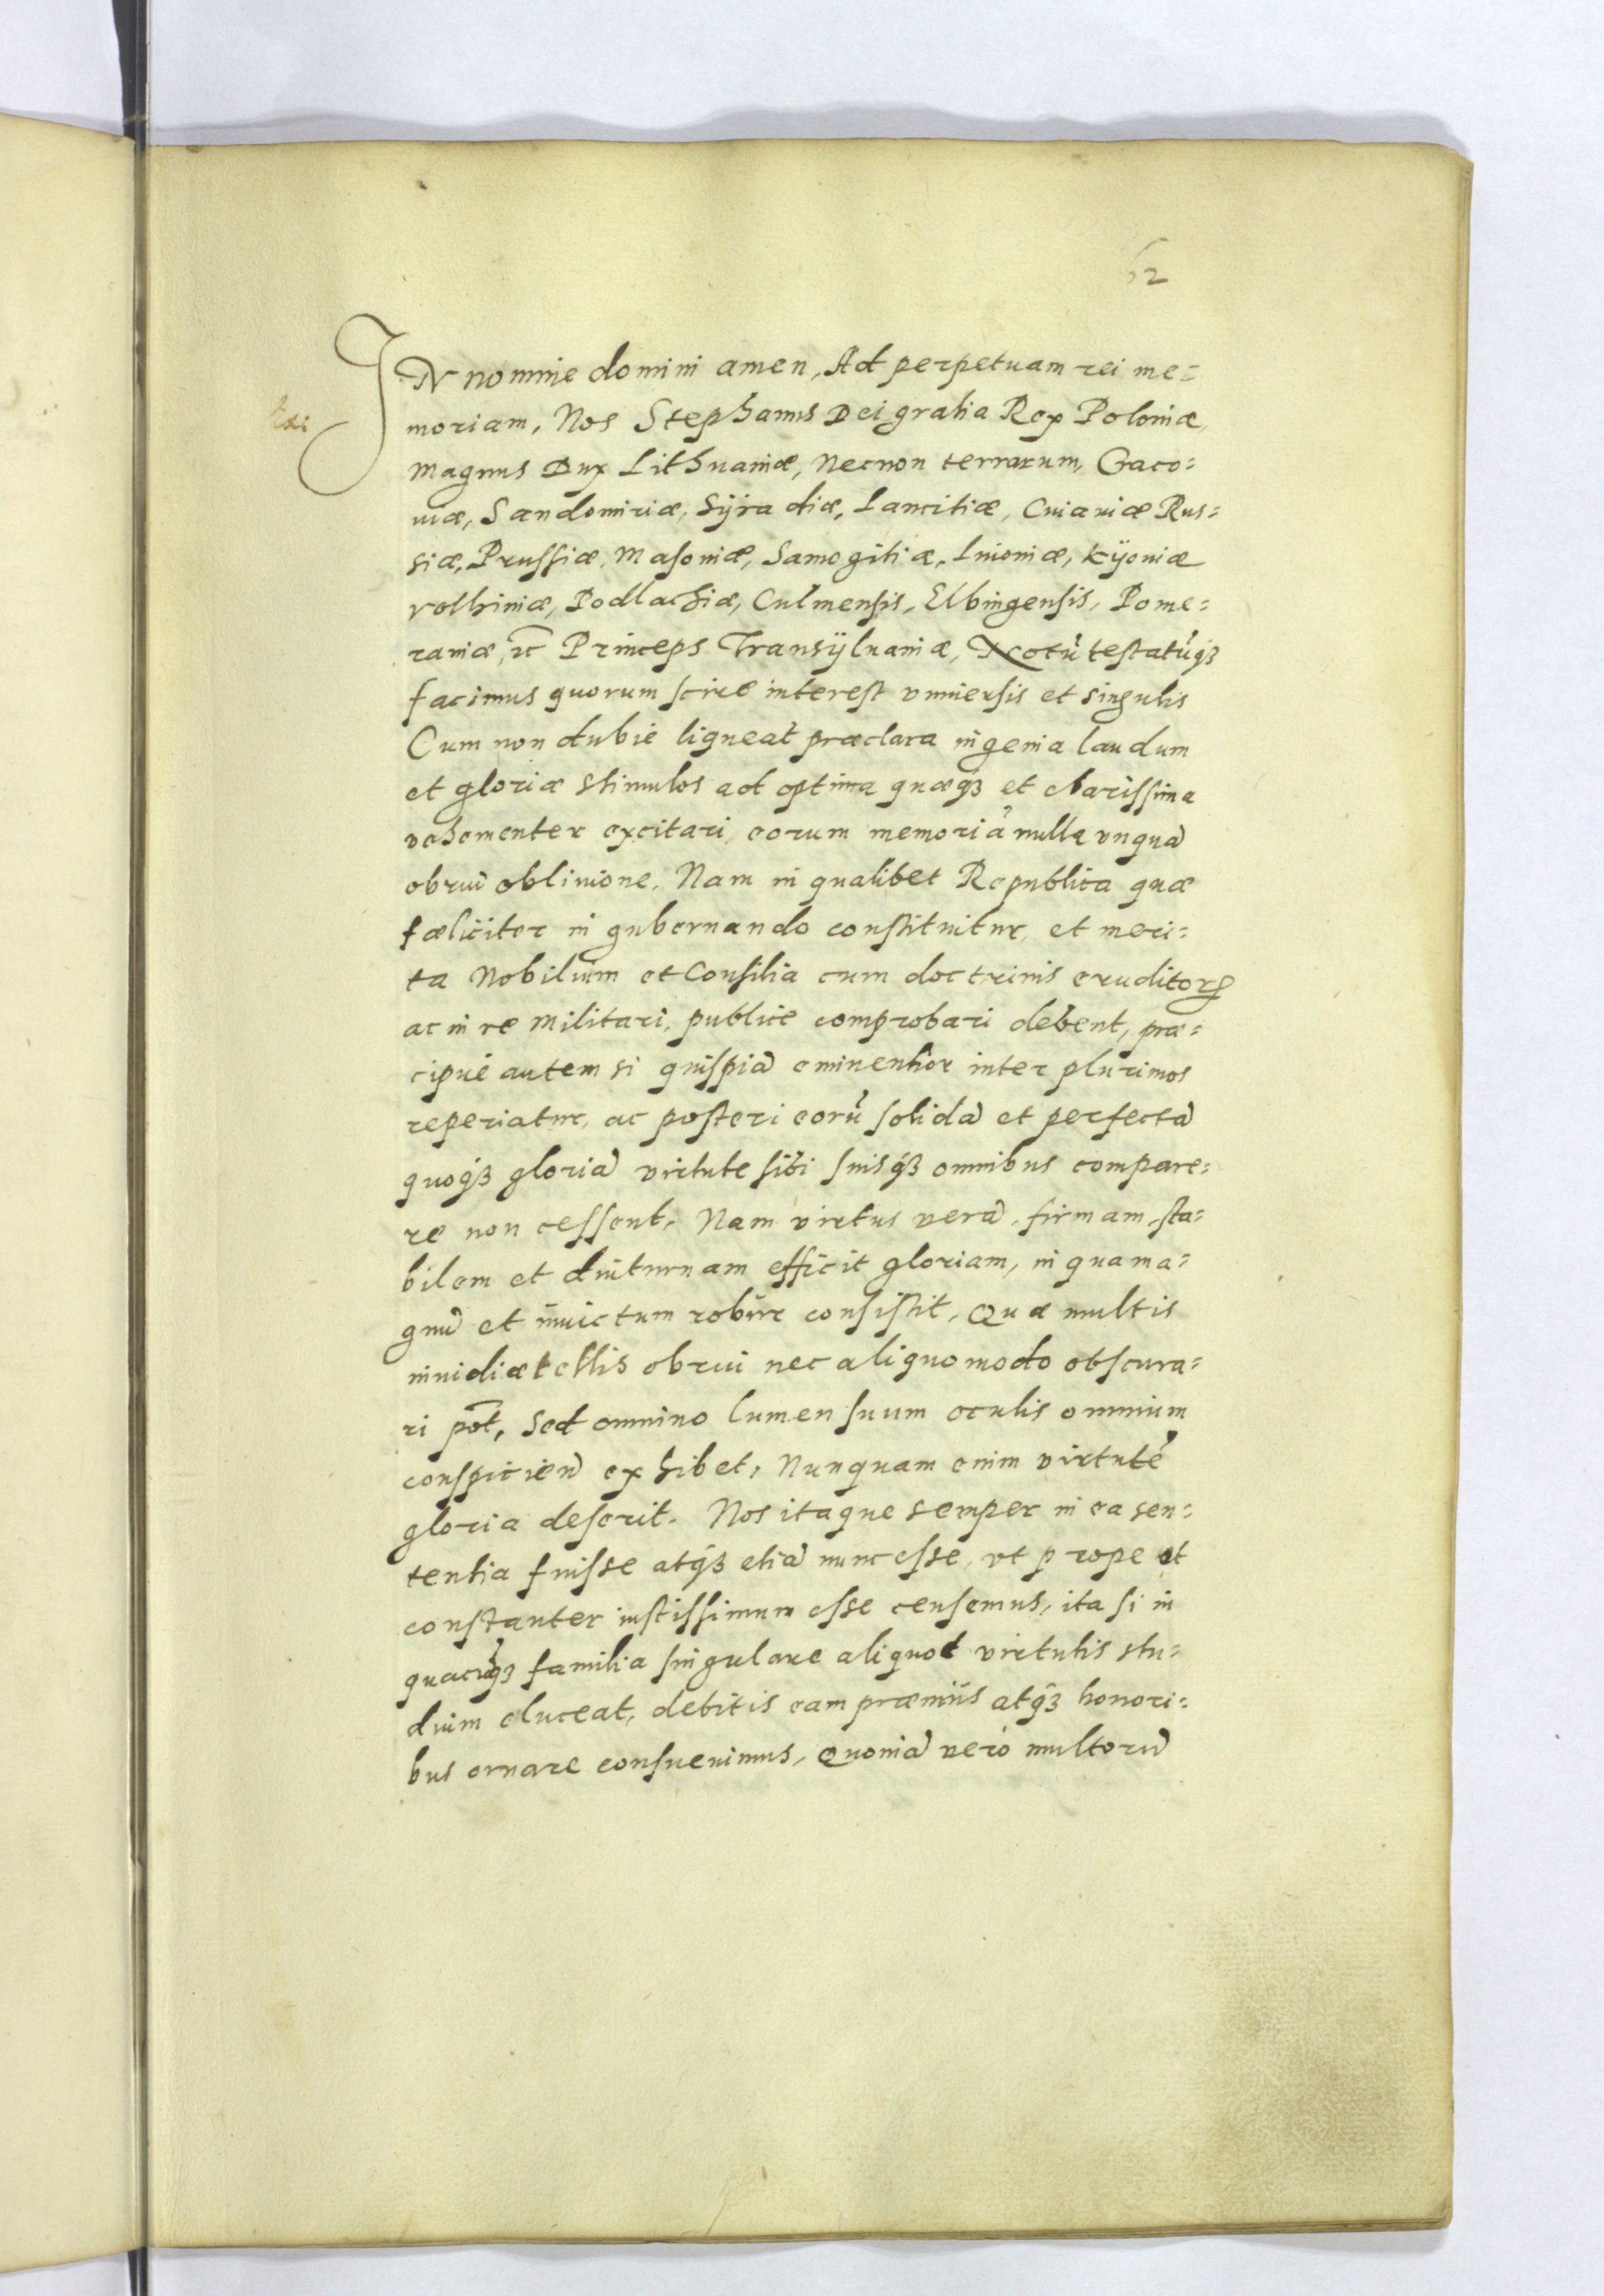 62
IN nomine domini amen, Ad perpetuam rei me=
moriam, Nos Stephanus Dei gratia Rex Poloniæ,
Magnus Dux Lithuaniæ, Necnon terrarum, Craco=
uiæ, Sandomiriæ, Sÿradiæ, Lancitiæ, Cuiauiæ Rus=
siæ, Prussiæ, Masouiæ, Samogitiæ, Liuoniæ, Kÿouiæ
volhiniæ, Podlachiæ, Culmensis, Elbingensis, Pome=
raniæ, ꝛc Princeps Transÿluaniæ, Notū testatūqꝫ
facimus quorum scire interest vniuersis et singulis
Cum non dubie liqueat præclara ingenia laudum
et gloriæ stimulos ad optima quæqꝫ et clarissima
vehementer excitari, eorum memoriā nulla vnquā
obrui obliuione, Nam in qualibet Republica quæ
fœliciter in gubernando constituitur, et meri=
ta Nobilium et Consilia cum doctrinis eruditoꝝ
ac in re militari, publice comprobari debent, præ=
cipue autem si quispiā eminentior inter plurimos
reperiatur, ac posteri eorū solidā et perfectā
quoqꝫ gloriā virtute sibi suisqꝫ omnibus compare=
re non cessent, Nam virtus verā, firmam, sta=
bilem et diuturnam efficit gloriam, in qua ma=
gnū et inuictum robur consistit, Quæ multis
inuidiæ tellis obrui nec aliquo modo obscura=
ri pōt, Sed omnino lumen suum oculis omnium
conspiciend exhibet, Nunquam enim virtutē
gloria deserit. Nos itaque semper in ea sen=
tentia fuisse atqꝫ etiā nunc esse, vt prope et
constanter iustissimum esse censemus, ita si in
quacūqꝫ familia singulare aliquod virtutis stu=
dium eluceat, debitis eam præmiis atqꝫ honori=
bus ornare consueuimus, Quoniā vero multorū